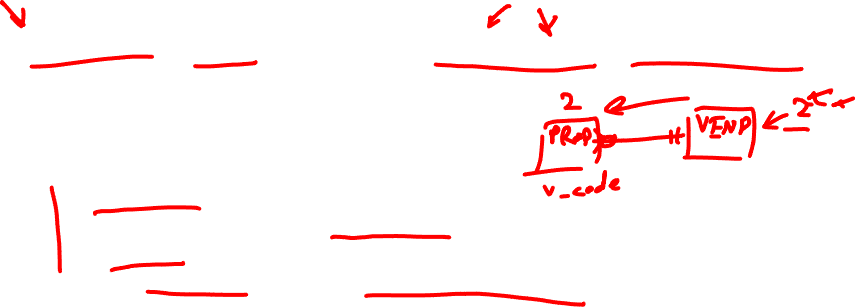 2
PROD VEND 2
v_code